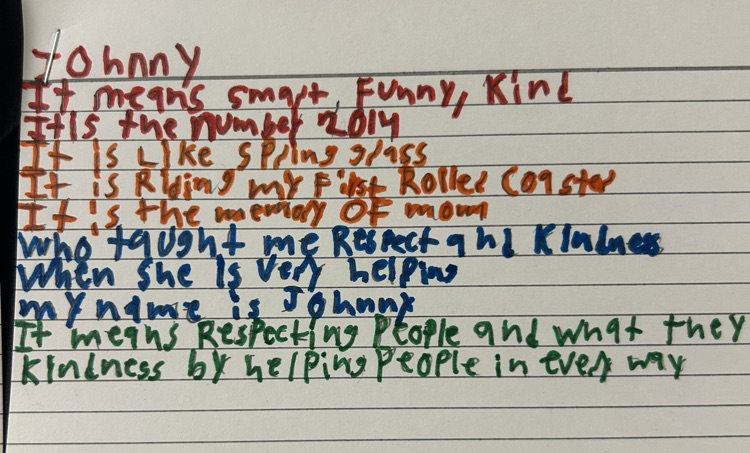 Johnny
It means smart, Funny, Kind
It is the number 2014
It is Like spring grass
It is Riding my First Roller Coaster
It is the memory OF mom
Who taught me Respect and Kindness
When she Is Very helping
my name is Johnny
It means Respecting People and what they
Kindness by helping People in every way